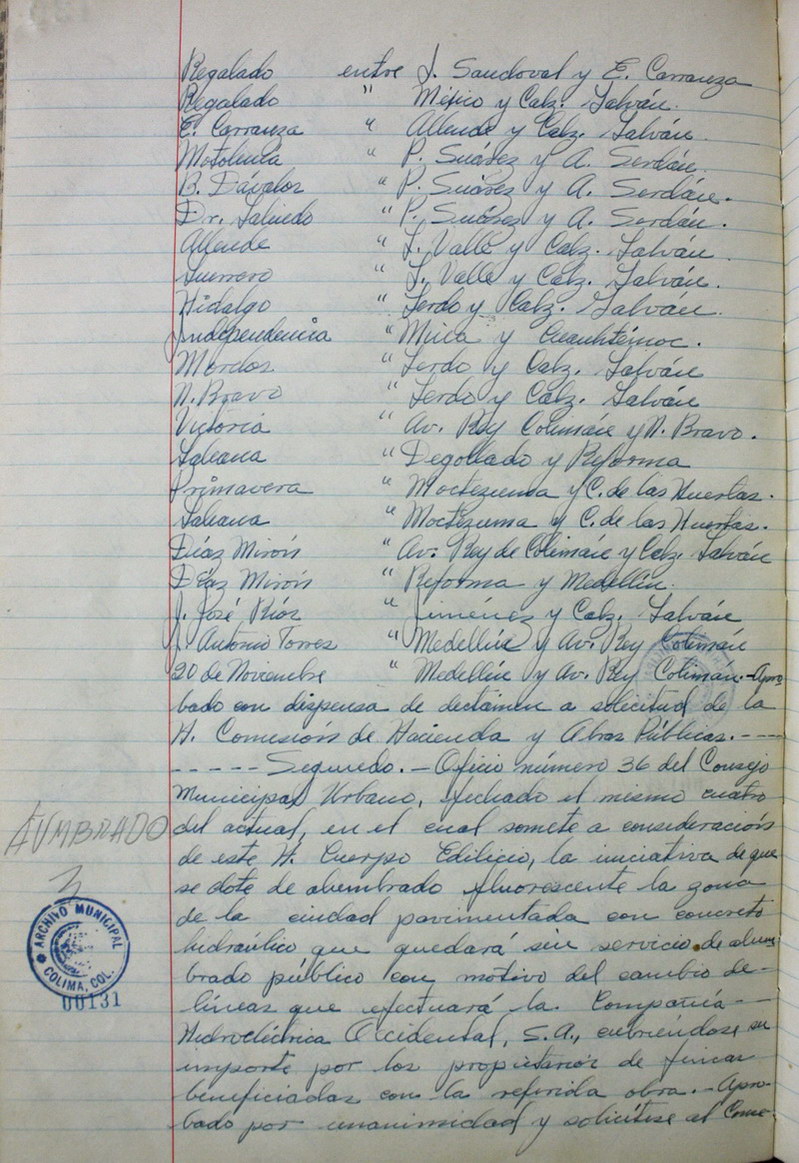 Regalado entre J. Sandoval y E. Carranza
Regalado " Méjico y Calz. Galván.
E. Carranza " Allende y Calz. Galván.
Motolinía " P. Suárez y A. Serdán.
B. Dávalos " P. Suárez y A. Serdán.
Dr. Salcedo " P. Suárez y A. Serdán.
Allende " L. Valle y Calz. Galván.
Guerrero " L. Valle y Calz. Galván.
Hidalgo " Lerdo y Calz. Galván.
Independencia " Mina y Cuauhtémoc.
Morelos " Lerdo y Calz. Galván
N. Bravo " Lerdo y Calz. Galván
Victoria " Av. Rey Colimán y N. Bravo.
Galeana " Degollado y Reforma
Primavera " Moctezuma y C. de las Huertas.
Galeana " Moctezuma y C. de las Huertas.
Díaz Mirón " Av. Rey de Colimán y Calz. Galván
Díaz Mirón " Reforma y Medellín.
J. José Ríos " Jiménez y Calz. Galván
J. Antonio Torres " Medellín y Av. Rey Colimán
20 de Noviembre " Medellín y Av. Rey Colimán.-Apro
bado con dispensa de dictámen a solicitud de la
H. Comisión de Hacienda y Obras Públicas.----
-----Segundo.-Oficio número 36 del Consejo
Municipal Urbano, fechado el mismo cuatro
del actual, en el cual somete a consideración
de este H. Cuerpo Edilicio, la iniciativa de que
se dote de alumbrado fluorescente la zona
de la ciudad pavimentada con concreto
hidráulico que quedará sin servicio de alum
brado público con motivo del cambio de-
líneas que efectuará la Compañía--
Hidroeléctrica Occidental, S.A., cubriéndose su
importe por los propietarios de fincas
beneficiadas con la referida obra.-Apro-
bado por unanimidad y solicítese al Conse-
ALUMBRADO
3
ARCHIVO MUNICIPAL
COLIMA, COL.
00131